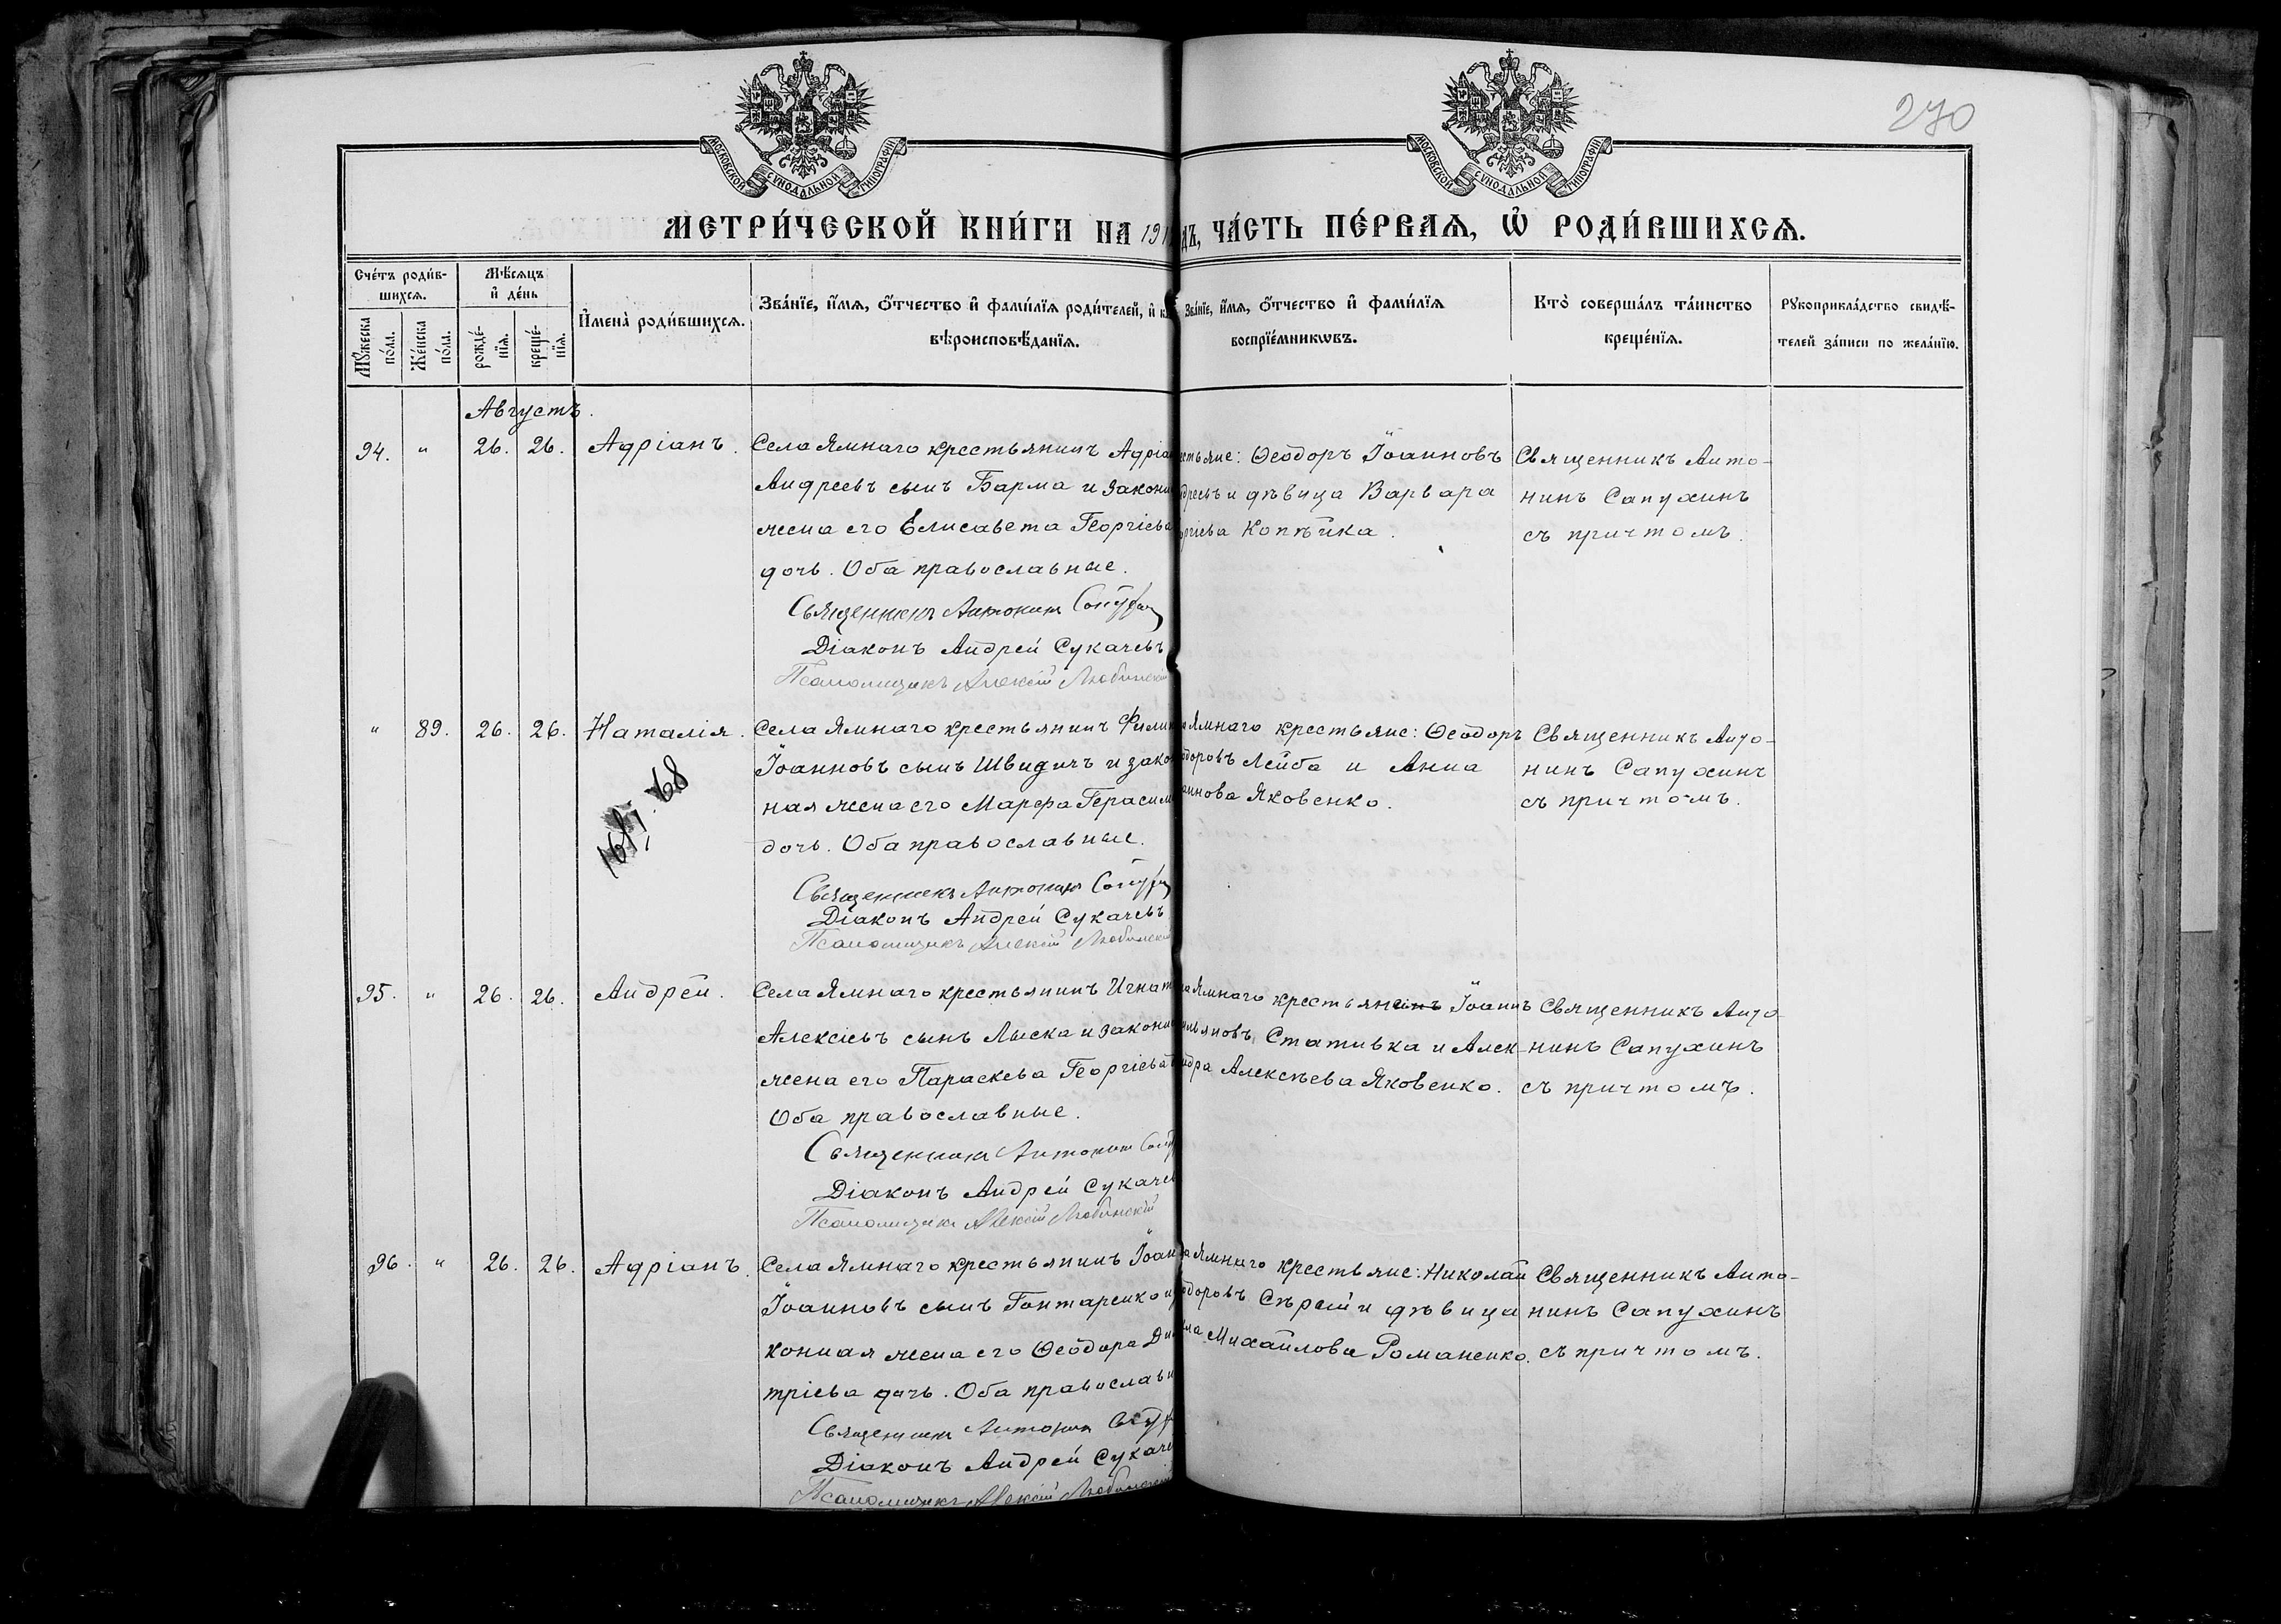 270
МОСКОВСКОЙ СѴНОДАЛЬНОЙ ТИПОГРАФІИ
МОСКОВСКОЙ СѴНОДАЛЬНОЙ ТИПОГРАФІИ
МЕТРИ́ЧЕСКОЙ КНИ́ГИ НА 191 ДЪ, ЧА́СТЬ ПЕ́РВАѦ, Ѡ҆ РОДИ́ВШИХСѦ.
Сче́тъ роди́в-
шихсѧ.
Мꙋ́жеска по́ла.
Же́нска по́ла.
Мѣ́сѧцъ
и҆ де́нь
рожде́-
нїѧ.
креще́-
нїѧ.
И҆мена̀ роди́вшихсѧ.
Зва́нїе, и҆́мѧ, ѻ҆́тчество и҆ фами́лїѧ роди́телей, и҆ к
вѣроисповѣ́данїѧ.
Зва́нїе, и҆́мѧ, ѻ҆́тчество и҆ фами́лїѧ
воспрїе́мникѡвъ.
Кто̀ соверша́лъ та́инство
креще́нїѧ.
Рꙋкоприкла́дство свидѣ́-
телей за́писи по жела́нїю.
Августъ.
94. " 26. 26. Адріанъ. Села Ямнаго крестьянинъ Адріа
Андреевъ сынъ Барма и законн
жена его Елисавета Георгіева
дочь. Оба православные.
Священникъ Антонин Сапухин
Діаконъ Андрей Сукачевъ
Псаломщикъ Алексій Любинскій
естьяне: Ѳеодоръ Іоанновъ
дреевъ и дѣвица Варвара
оргіева Копѣйка.
Священникъ Анто-
нинъ Сапухинъ
съ причтомъ.
" 89. 26. 26. Наталія. Села Ямнаго крестьянинъ Филип
Іоанновъ сынъ Швидичъ и закон
ная жена его Марфа Герасим
дочь. Оба православные.
Священникъ Антонин Сапухин
Діаконъ Андрей Сукачевъ
Псаломщикъ Алексій Любинскій
Ямнаго крестьяне: Ѳеодоръ
одоровъ Лейба и Анна
аннова Яковенко.
Священникъ Анто-
нинъ Сапухинъ
съ причтомъ.
95. " 26. 26. Андрей. Села Ямнаго крестьянинъ Игнат
Алексіевъ сынъ Лыска и законн
жена его Параскева Георгіева
Оба православные.
Священникъ Антонин Сапу
Діаконъ Андрей Сукачев
Псаломщикъ Алексій Любинскій
а Ямнаго крестьянеинъ Іоаннъ
ьяновъ Стативка и Алек-
ндра Алексѣева Яковенко.
Священникъ Анто
нинъ Сапухинъ
съ причтомъ.
96. " 26. 26. Адріанъ. Села Ямнаго крестьянинъ Іоан
Іоанновъ сынъ Гонтаренко и
конная жена его Ѳеодора Ди
тріева дочь. Оба православн
Священникъ Антонин Сапух
Діаконъ Андрей Сукаче
Псаломщикъ Алексій Любинскі
а Ямнаго крестьяне: Николай
одоровъ Сѣрый и дѣвица
Михайлова Романенко.
Священникъ Анто-
нинъ Сапухинъ
съ причтомъ.